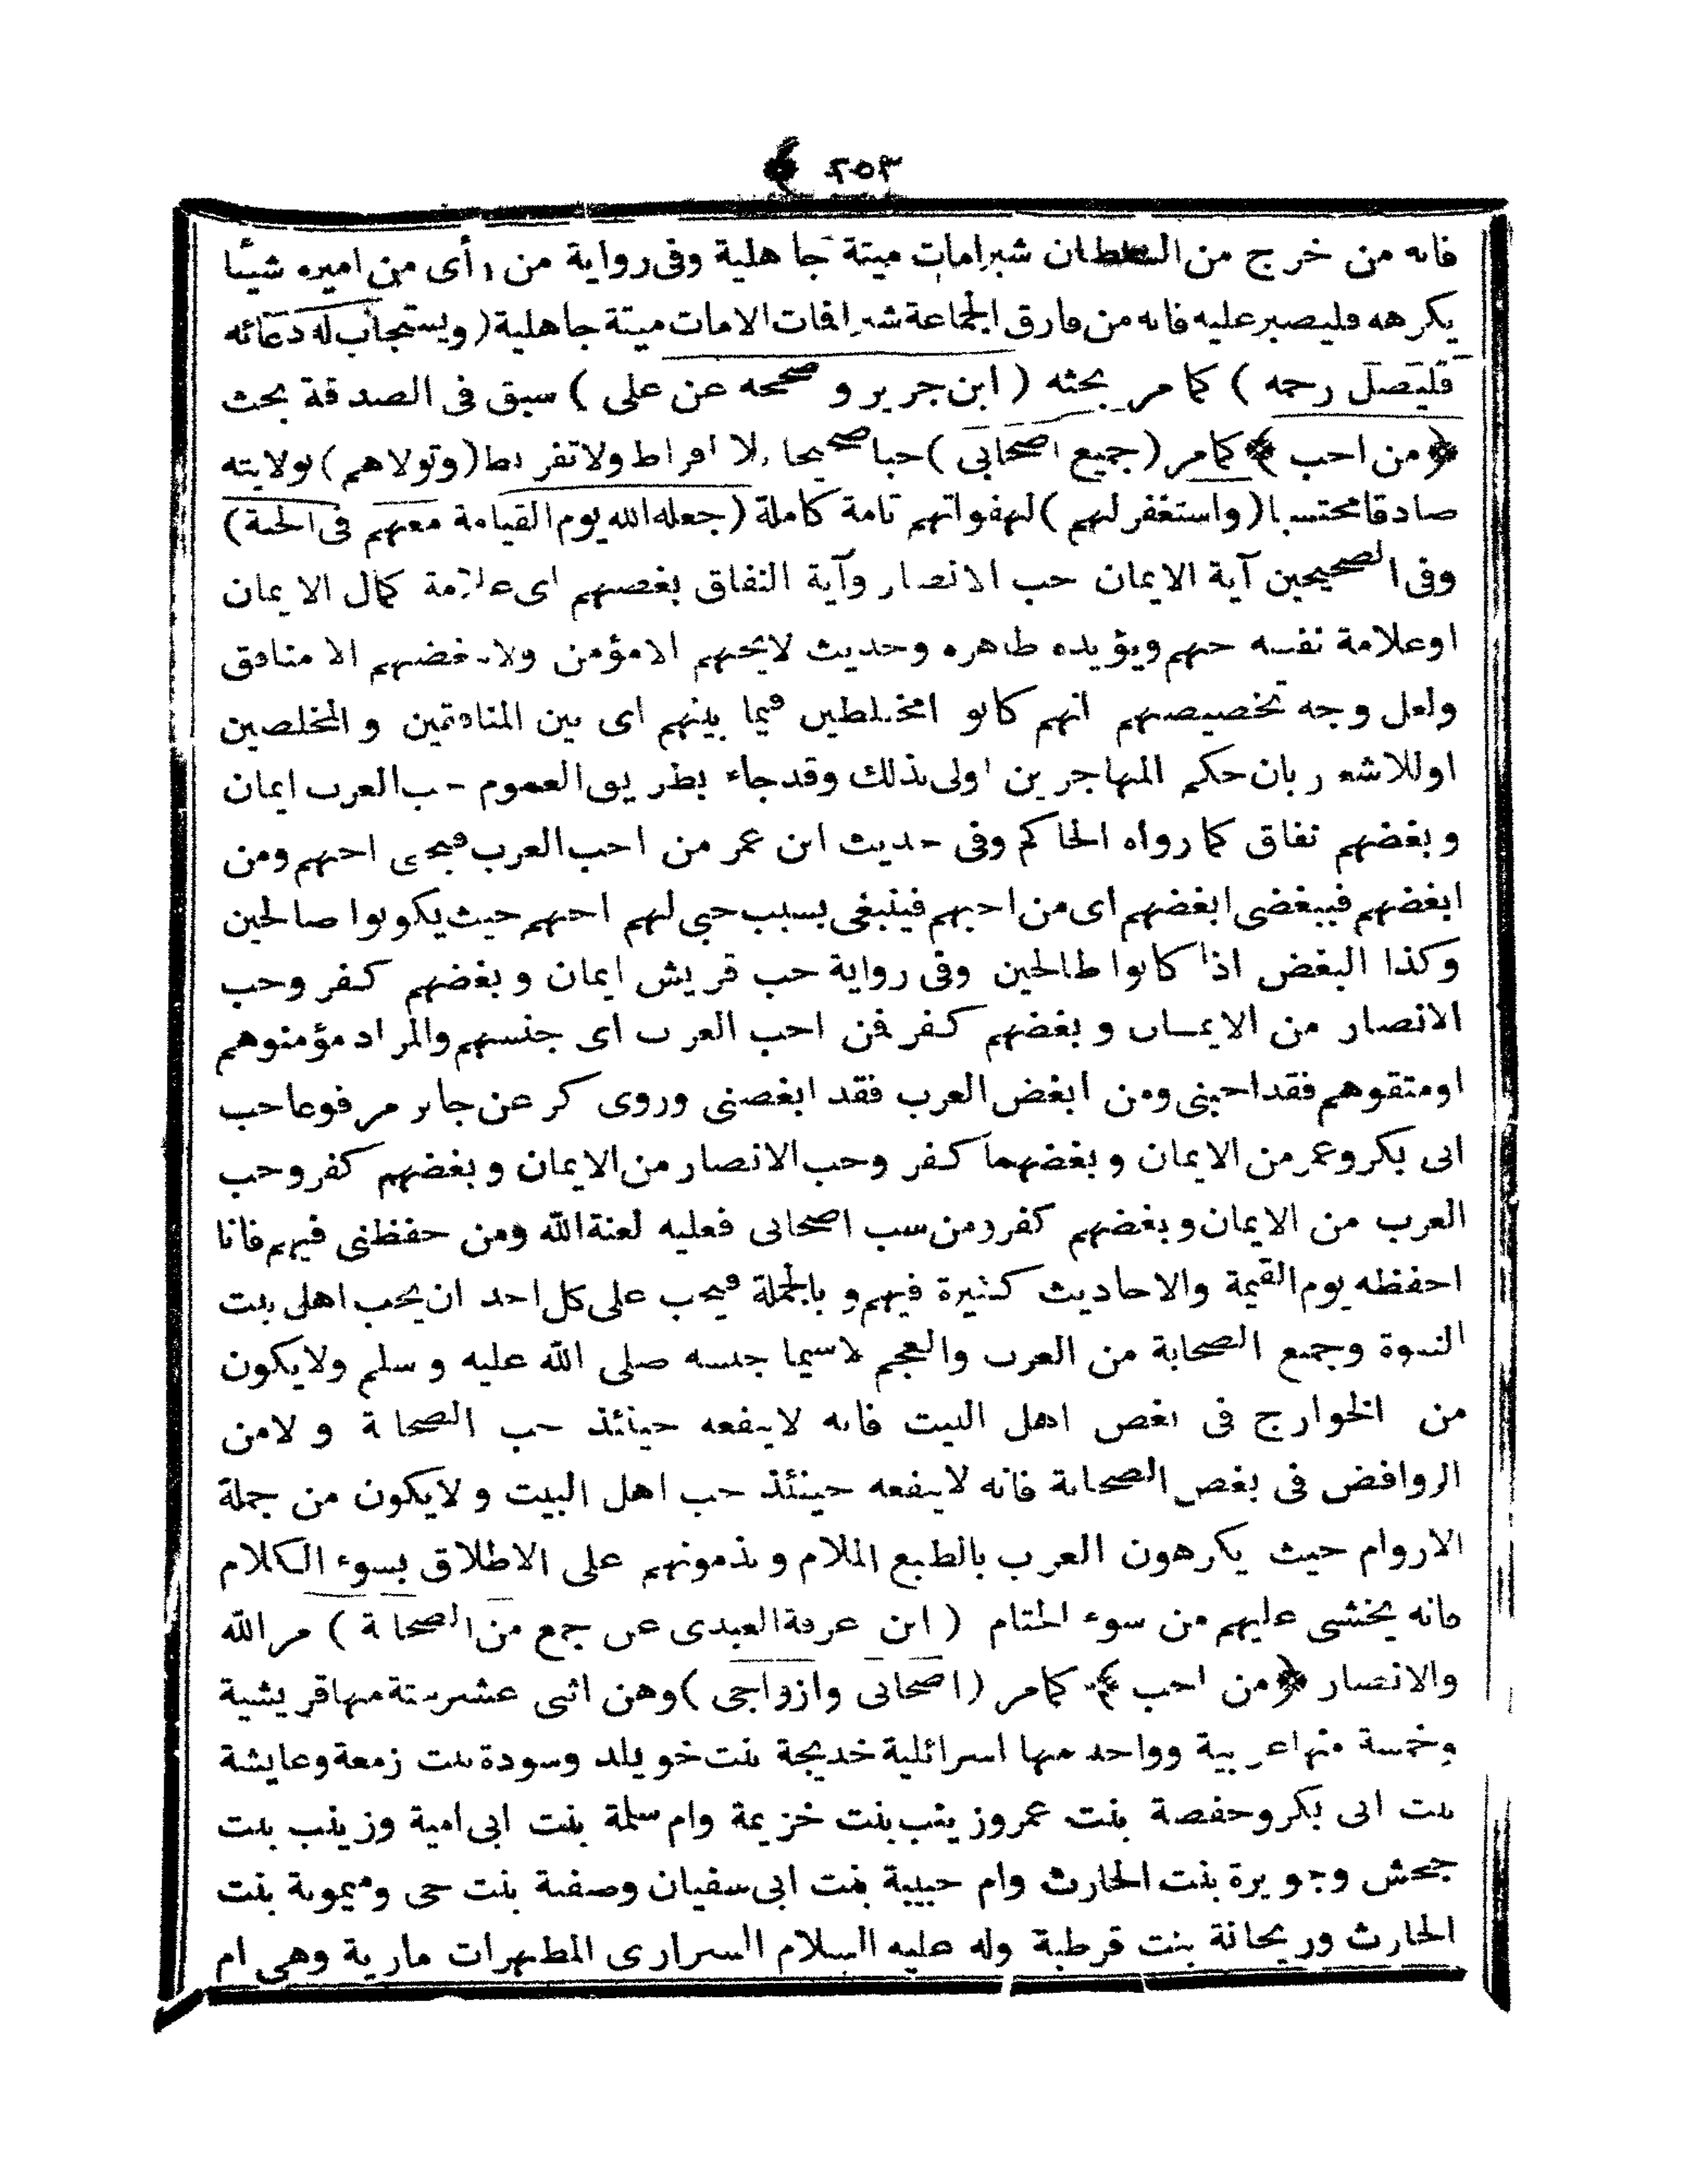 ﴿ ٢٥٣ ﴾
فانه من خرج من السلطان شبرا مات ميتة جاهلية وفى رواية من رأى من اميره شيئا
يكرهه فليصبر عليه فانه من فارق الجماعة شبرا فمات الامات ميتة جاهلية (ويستجاب له دعائه
فليصل رحمه ) كمامر بحثه ( ابن جرير وصححه عن على ) سبق فى الصدقة بحث
﴿من احب﴾ كمامر (جميع اصحابى) حبا صحيحا بلا افراط ولا تفريط (وتولاهم) بولايته
صادقا محتسبا (واستغفر لهم) لهفواتهم تامة كاملة (جعله الله يوم القيامة معهم فى الجنة)
وفى الصحيحين آية الايمان حب الانصار وآية النفاق بغضهم اى علامة كمال الايمان
اوعلامة نفسه حبهم ويؤيده ظاهره وحديث لايحبهم الامؤمن ولايبغضهم الا منافق
ولعل وجه تخصيصهم انهم كانو امختلطين فيما بينهم اى بين المنافقين و المخلصين
اوللاشعار بان حكم المهاجرين اولى بذلك وقدجاء بطريق العموم حب العرب ايمان
وبغضهم نفاق كما رواه الحاكم وفى حديث ابن عمر من احب العرب فبحبى احبهم ومن
ابغضهم فببغضى ابغضهم اى من احبهم فينبغى بسبب حبى لهم احبهم حيث يكونوا صالحين
وكذا البغض اذا كانوا طالحين وفى رواية حب قريش ايمان وبغضهم كفر وحب
الانصار من الايمان وبغضهم كفر فمن احب العرب اى جنسهم والمراد مؤمنوهم
اومتقوهم فقد احبنى ومن ابغض العرب فقد ابغضنى وروى كر عن جابر مرفوعا حب
ابى بكر وعمر من الايمان وبغضهما كفر وحب الانصار من الايمان وبغضهم كفر وحب
العرب من الايمان وبغضهم كفر ومن سب اصحابى فعليه لعنة الله ومن حفظنى فيهم فانا
احفظه يوم القيمة والاحاديث كثيرة فيهم و بالجملة فيجب على كل احد ان يحب اهل بيت
النبوة وجميع الصحابة من العرب والعجم لاسيما جنسه صلى الله عليه وسلم ولايكون
من الخوارج فى بغض اهل البيت فانه لاينفعه حينئذ حب الصحابة ولامن
الروافض فى بغض الصحابة فانه لاينفعه حينئذ حب اهل البيت ولايكون من جملة
الاروام حيث يكرهون العرب بالطبع الملام ويذمونهم على الاطلاق بسوء الكلام
فانه يخشى عليهم من سوء الختام ( ابن عرفة العبدى عن جمع من الصحابة ) مر الله
والانصار ﴿من احب﴾ كمامر (اصحابى وازواجى) وهن اثنى عشر ستة منها قريشية
وخمسة منها عربية وواحد منها اسرائلية خديجة بنت خويلد وسودة بنت زمعة وعايشة
بنت ابى بكر وحفصة بنت عمر وزينب بنت خزيمة وام سلمة بنت ابى امية وزينب بنت
جحش وجويرة بنت الحارث وام حبيبة بنت ابى سفيان وصفية بنت حى وميمونة بنت
الحارث وريحانة بنت قرطبة وله عليه السلام السرارى المطهرات مارية وهى ام